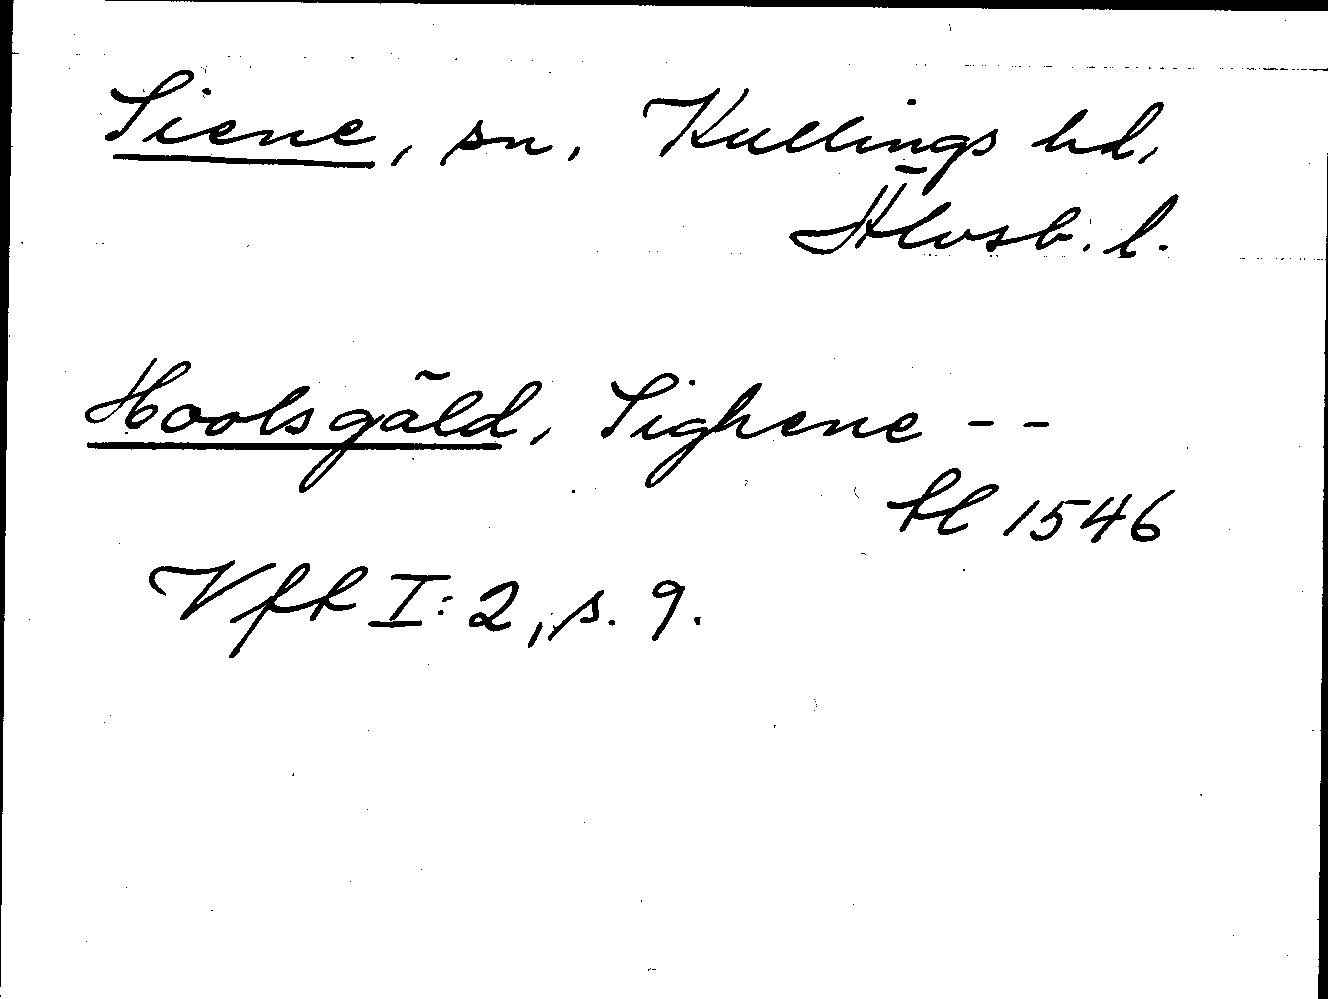 Siene, sn, Kullings hd,
Älvsb. l.
Hools gäld, Sighene - -
tl 1546
Vfft I: 2, s. 9.